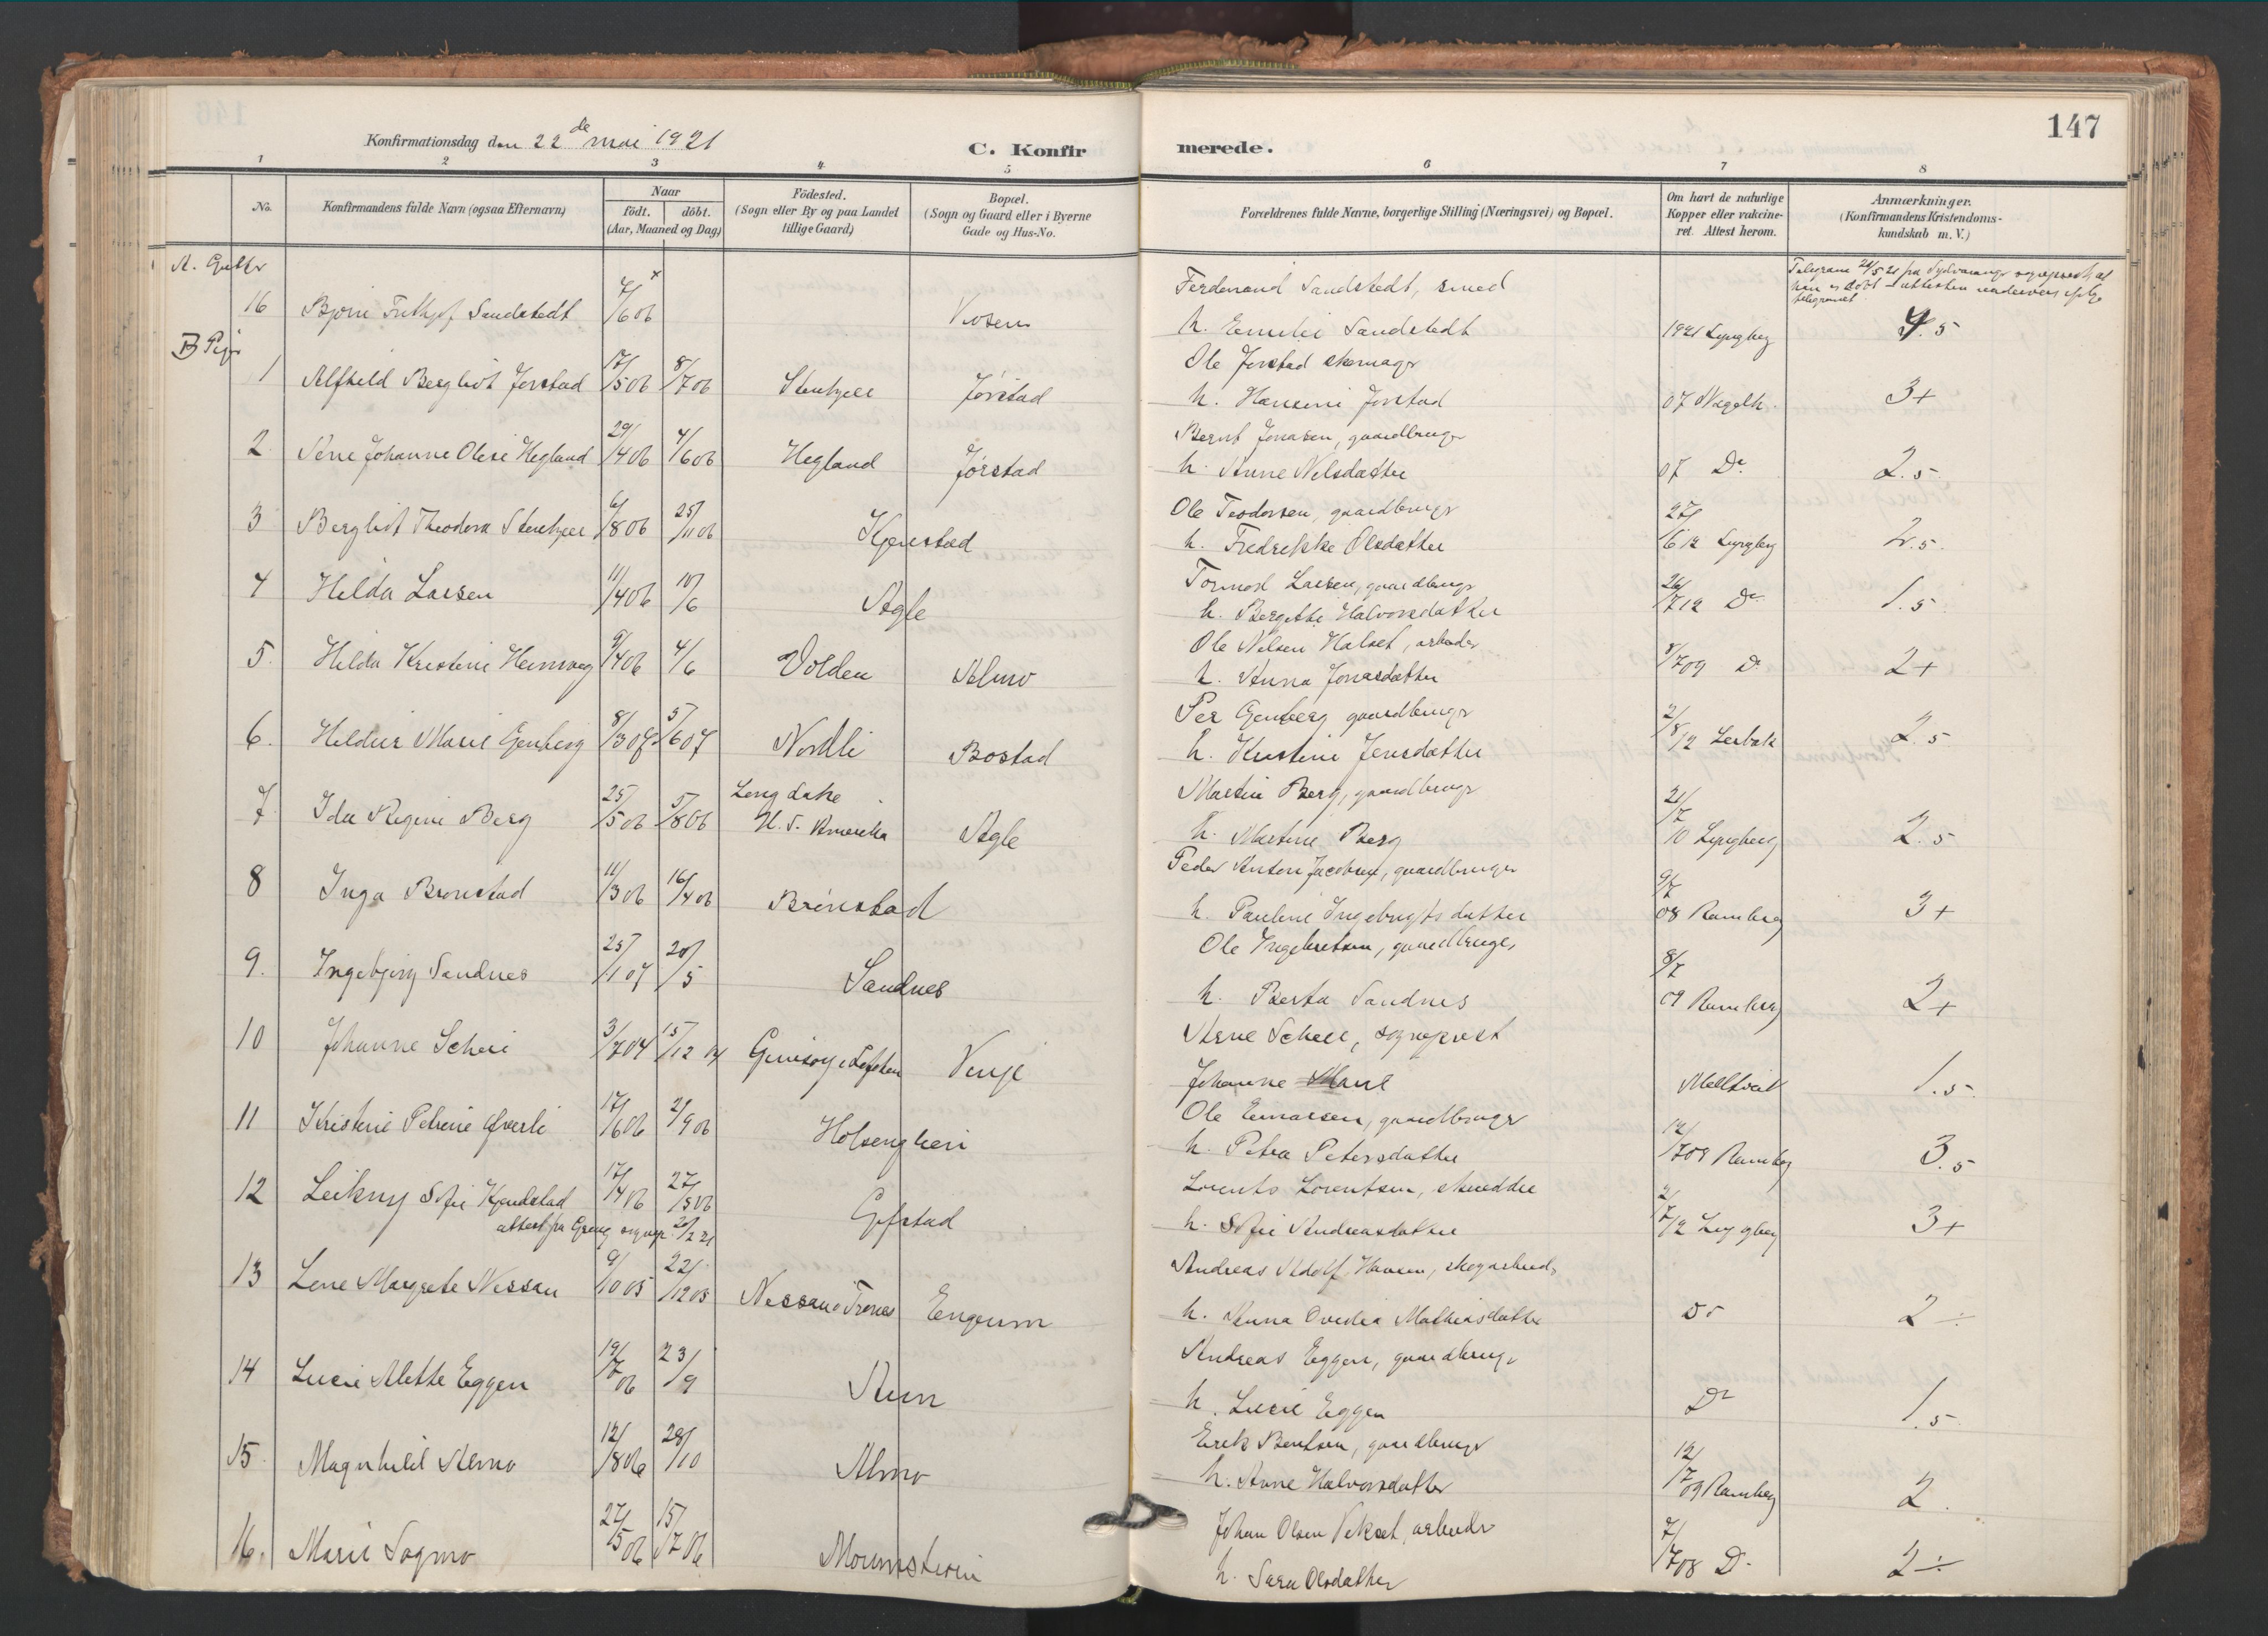 147
Konfirmationsdag den 22de mai 1921
C. Konfirmerede.
1 2 3 4 5 6 7 8
No.
Konfirmandens fulde Navn (ogsaa Efternavn)
Naar
födt. döbt.
(Aar, Maaned og Dag)
Födested.
(Sogn eller By og paa Landet
tillige Gaard)
Bopæl.
(Sogn og Gaard eller i Byerne
Gade og Hus-No.
Forældrenes fulde Navne, borgerlige Stilling (Næringsvei) og Bopæl.
Om havt de naturlige
Kopper eller vakcine-
ret. Attest herom.
Anmærkninger.
(Konfirmandens Kristendoms-
kundskab m. V.)
A. Gutter
Telegram 21/5 21 fra Sydvaranger
16 Bjorn Frithjof Sandstedt 7/6 06 x
Ferdinand Sandstedt, smed
h. Emilie Sandstedt 1921 Lyngberg 4.5
B Piger
1 Alfhild Bergliot Jorstad 17/5 06 8/7 06 Stenkjer Jørstad
Ole Jorstad skomager
h. Hansine Jorstad 07 3+
2 Anne Johanne Oline Hegland 29/4 06 4/6 06 Hegland Jørstad
Bernt Jonasen, gaardbruger
h. Anne Nilsdatter 07 Do 2.5
3 Bergliot Theodora Stenkjer 6/8 06 25/11 06 Kjenstad
Ole Teodorsen, gaardbruger
h. Fredrikke Olsdatter 27/6 12 Lyngberg 2.5
4 Hilda Larsen 11/4 06 10/6 Agle
Tormod Larsen, gaardbruger
h. Bergitte Halvorsdatter 26/7 12 Do 1.5
5. Hilda Kristine Heimveg 9/4 06 4/6 Volden Almo
Ole Nilsen Halset, arbeider
h. Anna Jonasdatter /7 09 Do 2+
6. Hildur Marie Gjenberg 8/3 07 5/6 07 Nordli Bostad
Per Gjenberg gaardbruger
h. Kristine Jensdatter 2/8 12 Lerbak 2.5
7. Ida Regine Berg 25/5 06 5/8 06 Long Lake N. Amerika Agle
Martin Berg, gaardbruger
h. Martine Berg 21/7 10 Lyngberg 2.5
8 Inga Bronstad 11/3 06 16/4 06 Brønstad
Peder Anton Jacobsen, gaardbruger
h. Pauline Ingebrigtsdatter 9/7 08 Ramberg 3+
9. Ingebjørg Sandnes 25/1 07 20/5 Sandnes
Ole Ingebretsen, gaardbruger
h. Berta Sandnes 8/7 09 Ramberg 2+
10 Johanne Schei 3/7 04 15/12 04 Gimsøy i Lofoten Venje
Arne Schei, sogneprest
Johanne 1.5
11 Kristine Petrine Øverli 17/6 06 2/9 06 Holsengheri
Ole Einarsen, gaardbruger
h. Petra Petersdatter 12/7 09 Ramberg 3.5
12 Leikny Sofie Kjendstad 17/4 06 27/5 06 Gifstad
attest fra Grong sognepr. 2/2 21
Lorents Lorentsen, skredder
h. Sofie Andreasdatter 2/7 12 Lyngberg 3+
13 Lene Margrete Nessan 9/10 05 22/12 05 Nessan Trones Engeum
Andreas Adolf Hansen, skogarbeider
h. Anna Ovedia Mathiasdatter Do 2 ÷
14 Lucie Alette Eggen 19/7 06 23/9 Aun
Andreas Eggen, gaardbruger
h. Lucie Eggen Do 1.5
15. Magnhild Almo 12/8 06 28/10 Almo
Erik Bentsen, gaardbruger
h. Anne Halvorsdatter 12/7 09 Ramberg 2.
16. Marie Sogmo 27/5 06 15/7 06
Johan Olsen Vekset, arbeider
h. Sara Olsdatter 7/7 08 Do 2÷